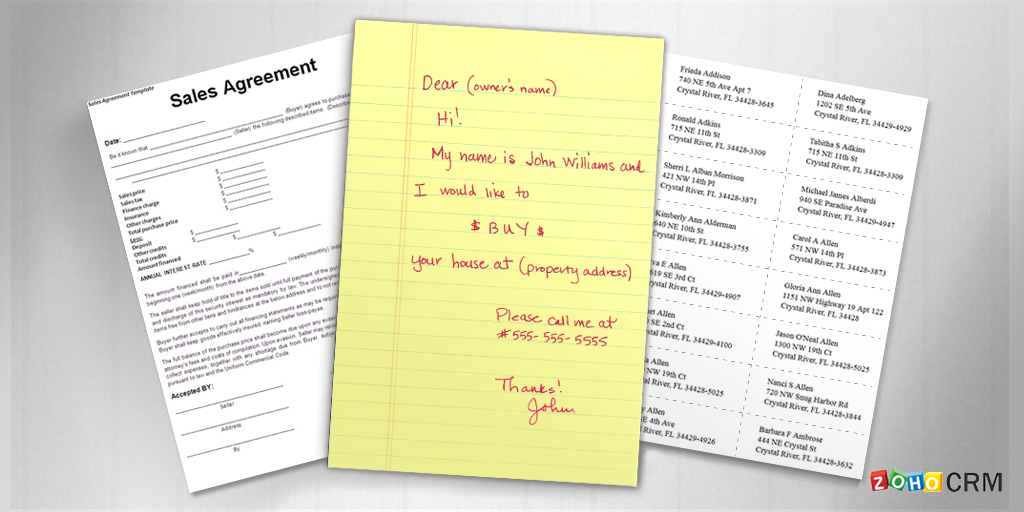 Sales Agreement Template
Sales Agreement
Date:
(Buyer) agrees to purchase
Be it known that (Seller) the following described items (Describe
Sales price $
Sales tax $
Finance charge $
Insurance $
Other charges $
Total purchase price
Less:
Deposit $
Other credits $ $
Total credits
Amount financed
ANNUAL INTEREST RATE %
The amount financed shall be paid in (weekly/monthly),
beginning one (week/month) from the above date.
The seller shall keep hold of title to the items sold until full payment of the
and discharge of this security interest as mandatory by law. The undersigned
items free from other liens and hindrances at the below address and to not
Buyer further accepts to carry out all financing statements as may be required
Buyer shall keep goods effectively insured, naming Seller loss-payee.
The full balance of the purchase price shall become due upon any
attorney's fees and costs of compilation. Upon evasion, Seller may
collect expenses, together with any shortage due from Buyer,
pursuant to law and the Uniform Commercial Code.
Accepted BY:
Seller
Address
By
Dear (owner's name)
Hi!
My name is John Williams and
I would like to
$ BUY $
your house at (property address)
Please call me at
#555-555-5555
Thanks!
John
Frieda Addison
740 NE 5th Ave Apt 7
Crystal River, FL 34428-3645
Dina Adelberg
1202 SE 5th Ave
Crystal River, FL 34429-4929
Ronald Adkins
715 NE 11th St
Crystal River, FL 34428-3309
Tabitha S Adkins
715 NE 11th St
Crystal River, FL 34428-3309
Sherri L Alban Morrison
421 NW 14th Pl
Crystal River, FL 34428-3871
Michael James Alberdi
940 SE Paradise Ave
Crystal River, FL 34429-4947
Kimberly Ann Alderman
640 NE 10th St
Crystal River, FL 34428-3755
Carol A Allen
571 NW 14th Pl
Crystal River, FL 34428-3873
E Allen
619 SE 3rd Ct
River, FL 34429-4907
Gloria Ann Allen
1151 NW Highway 19 Apt 122
Crystal River, FL 34428
Allen
SE 2nd Ct
River, FL 34429-4100
Jason O'Neal Allen
1300 NW 19th Ct
Crystal River, FL 34428-5025
Allen
NW 19th Ct
River, FL 34428-5025
Nanci S Allen
720 NW Snug Harbor Rd
Crystal River, FL 34428-3844
Allen
SE 4th Ave
River, FL 34429-4926
Barbara F Ambrose
444 NE Crystal St
Crystal River, FL 34428-3632
ZOHO CRM